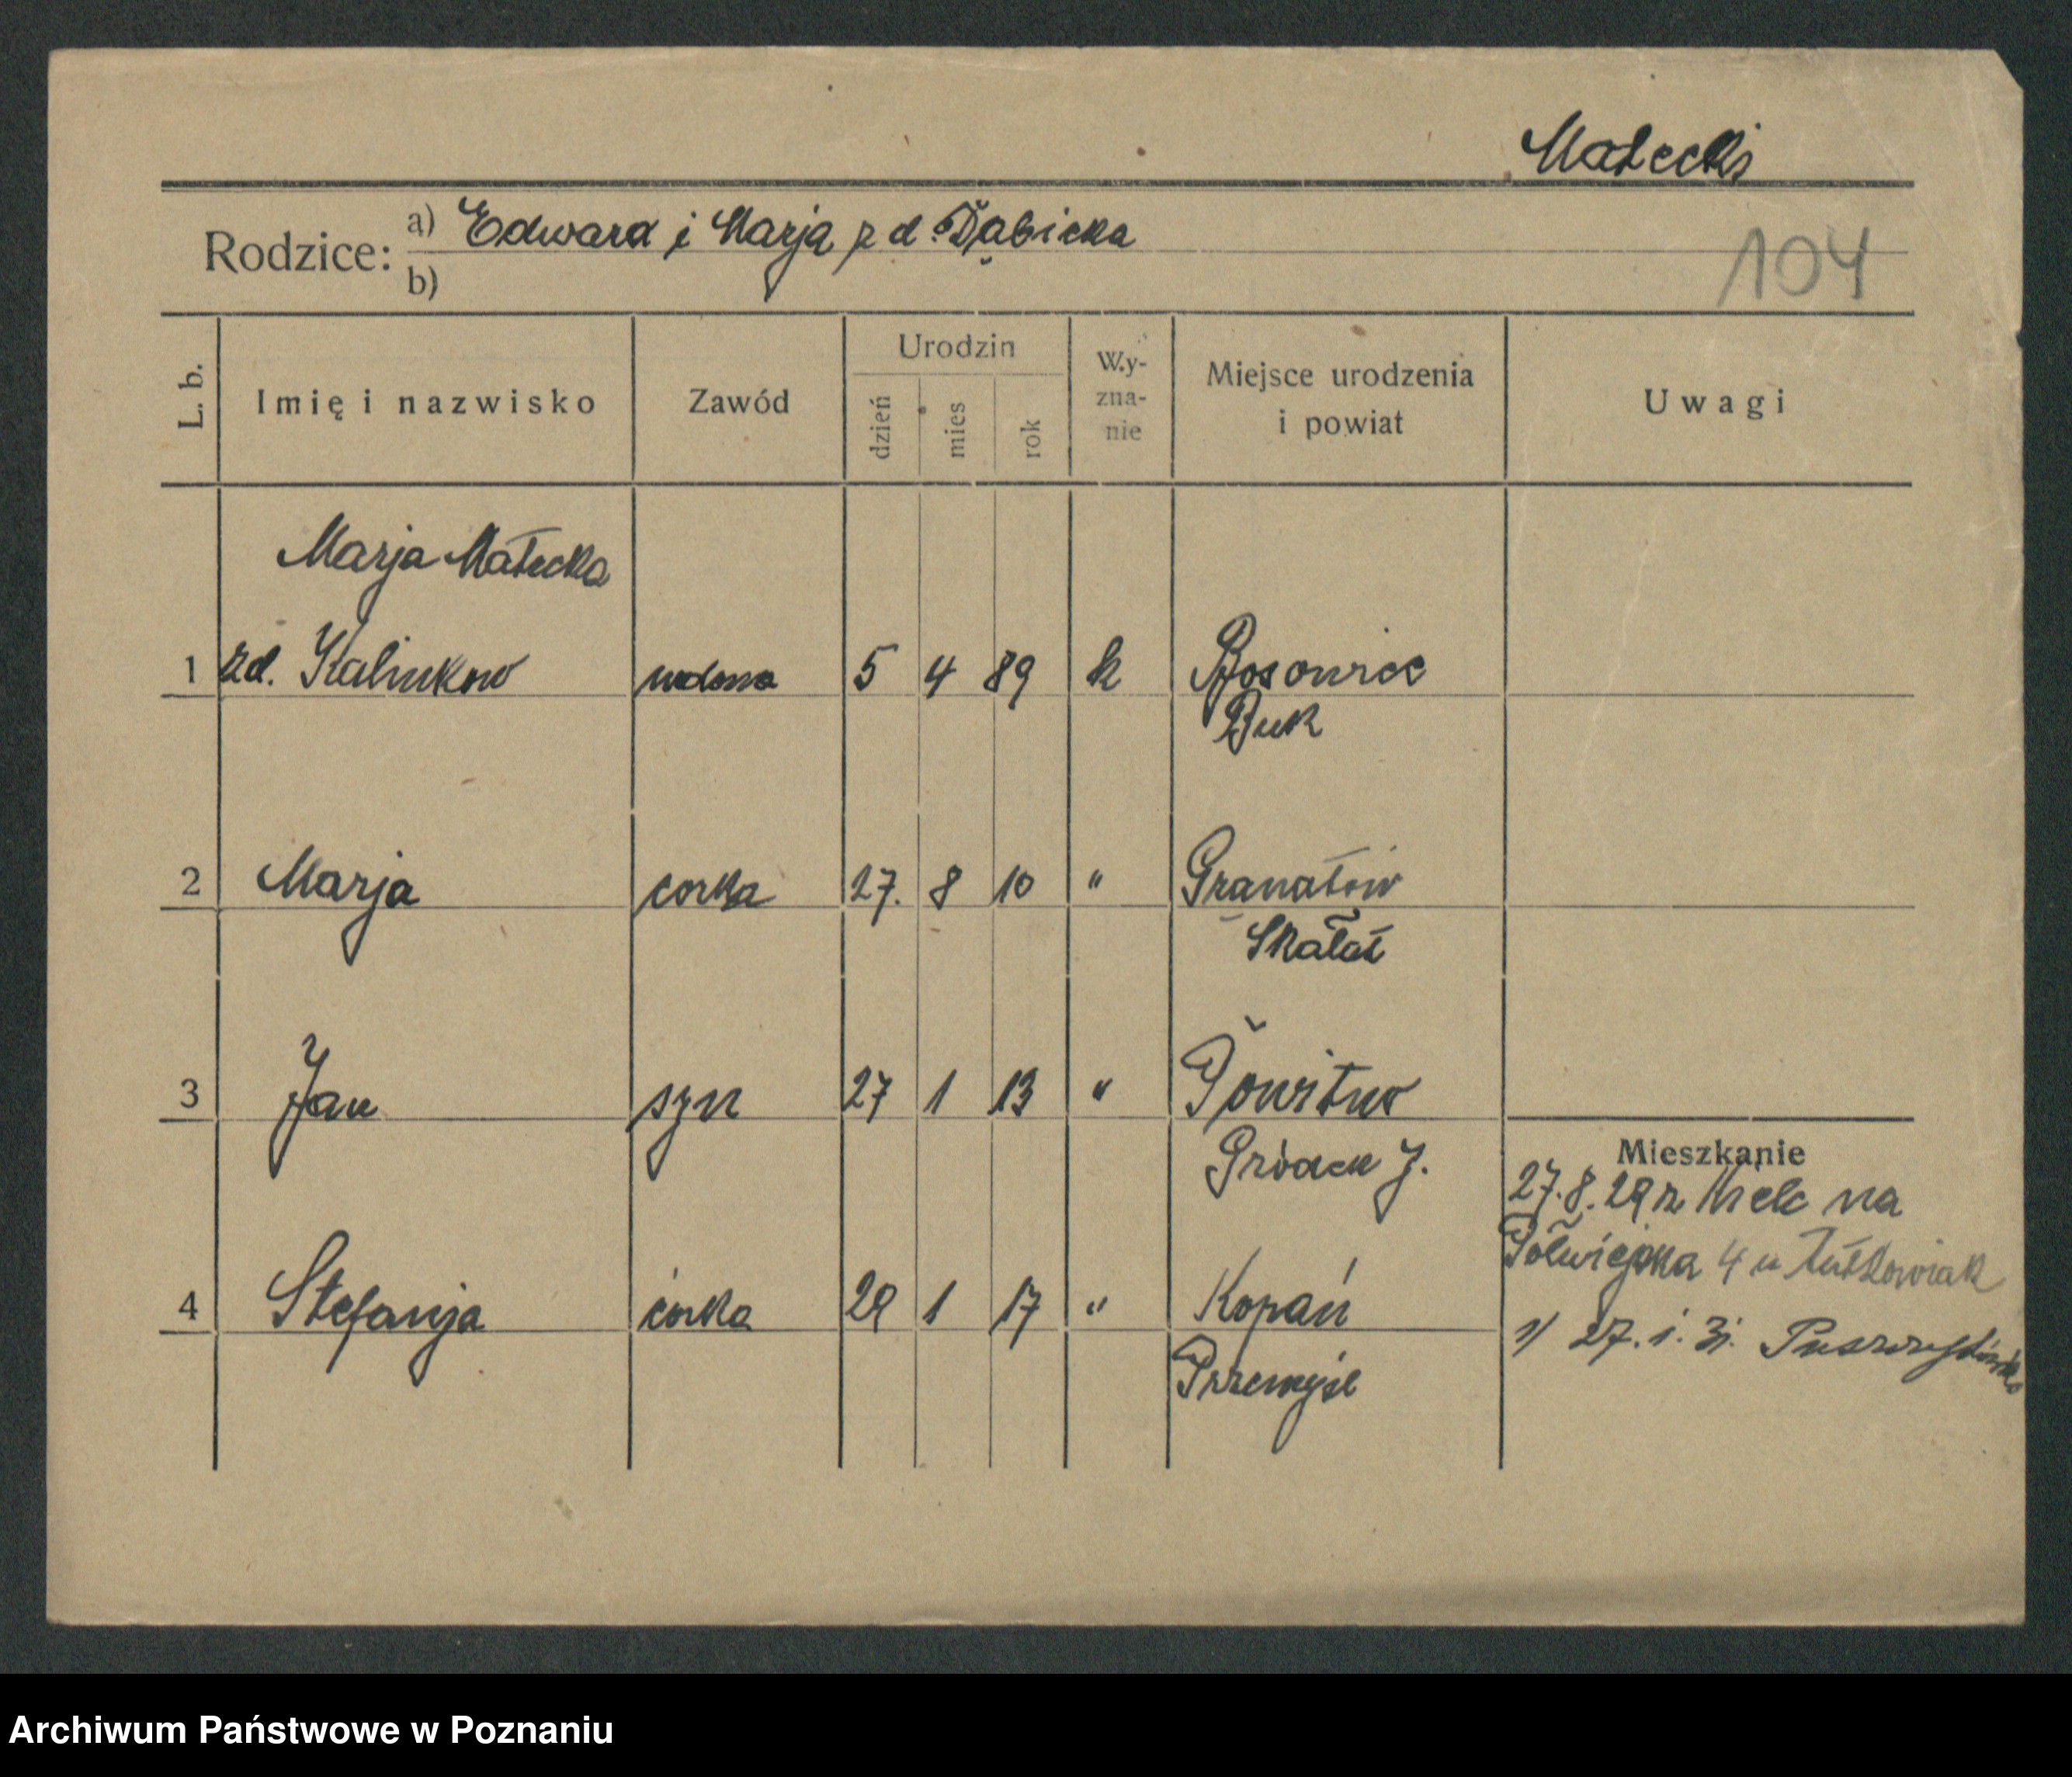 Małecki
Rodzice: a) Edward i Marja z d. Dąbicka
b)
L. b. Imię i nazwisko Zawód Urodzin dzień mies rok Wy-zna-nie Miejsce urodzenia i powiat Uwagi
Marja Małecka
1 zd. Kalinkow wdowa 5 4 89 k
Buk
2 Marja corka 27. 8 10 " Granatów
Skałat
3 Jan syn 27 1 13 "
Gródek J.
Mieszkanie
27.8.29 z Kielc na
4 Stefanja córka 29 1 17 " Kopań
Półwiejska 4 u
Przemyśl
1/ 27. 1. 31.
104
Archiwum Państwowe w Poznaniu